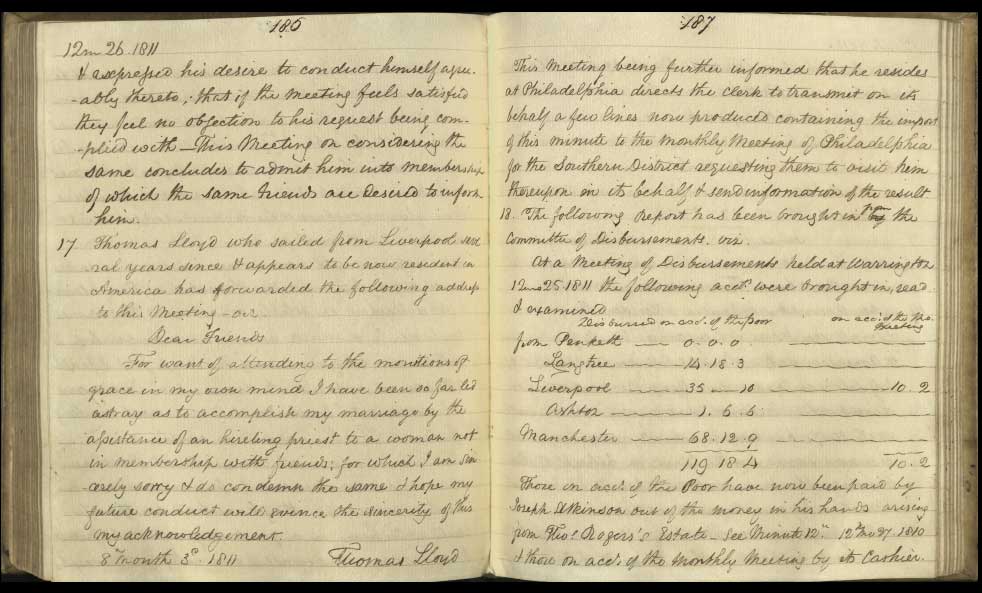 186
12m 26. 1811
& expressed his desire to conduct himself agree-
-ably thereto, that if the Meeting feels satisfied
they feel no objection to his request being com-
-plied with – This Meeting on considering the
same concludes to admit him into membership
of which the same Friends are desired to inform
him.
17 Thomas Lloyd who sailed from Liverpool seve
ral years since & appears to be now resident in
America has forwarded the following address
to this Meeting – viz.
Dear Friends
For want of attending to the monitions of
grace in my own mind I have been so far led
astray as to accomplish my marriage by the
assistance of an hireling priest to a woman not
in membership with friends; for which I am sin
-cerely sorry & do condemn the same & hope my
future conduct will evince the sincerity of this
my acknowledgement.
8th month 3d 1811 Thomas Lloyd
187
This Meeting being further informed that he resides
at Philadelphia directs the clerk to transmit on its
behalf a few lines now produced containing the import
of this minute to the Monthly Meeting of Philadelphia
for the Southern District requesting them to visit him
thereupon on its behalf & send information of the result.
18. The following Report has been brought in from the
Committee of Disbursements. viz.
At a Meeting of Disbursements held at Warrington
12mo 25. 1811 the following accts. were brought in, read
& examined
Disbursed on acct. of the poor on acct. of the Mo. Meeting
from Penketh — 0. 0. 0 —
Langtree — 14. 18. 3 —
Liverpool — 35 — 10 — 10. 2
Ashton — 1. 6. 6
Manchester — 68. 12. 9 —
119 18 4 10. 2
Those on acct. of the Poor have now been paid by
Joseph Atkinson out of the money in his hands arising
from Thos. Rogers's Estate. See Minute 12th. 12th Mo 27 1810
& those on acct. of the Monthly Meeting by its Cashier.